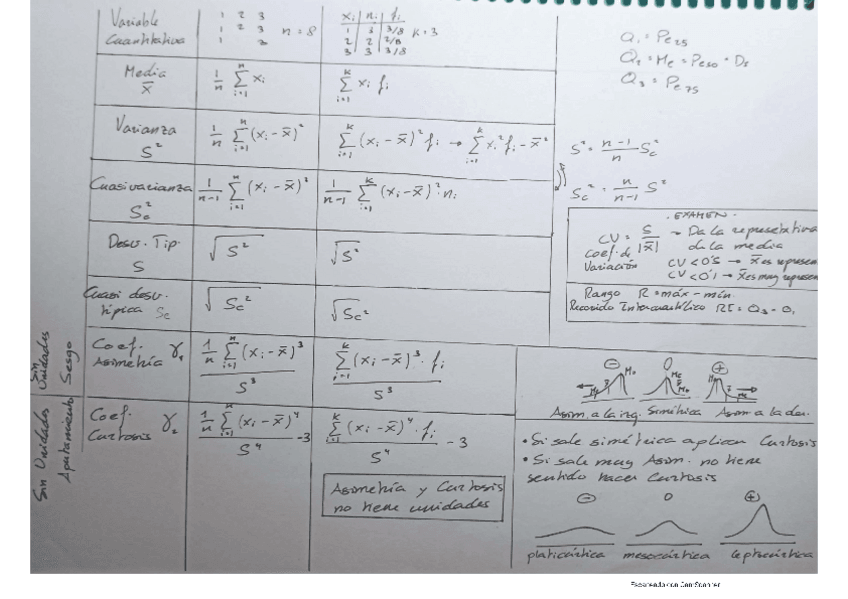 Variable
Cuantitativa
1 2 3
1 2 3
1 3
n = 8
xᵢ nᵢ fᵢ
1 3 3/8
2 2 2/8
3 3 3/8
K = 3
Media
x̄
1/n Σᵢ₌₁ⁿ xᵢ
Σᵢ₌₁ᵏ xᵢ fᵢ
Varianza
S²
1/n Σᵢ₌₁ⁿ (xᵢ - x̄)²
Σᵢ₌₁ᵏ (xᵢ - x̄)² fᵢ → Σᵢ₌₁ᵏ xᵢ² fᵢ - x̄²
Cuasivarianza
Sc²
1/n-1 Σᵢ₌₁ⁿ (xᵢ - x̄)²
1/n-1 Σᵢ₌₁ᵏ (xᵢ - x̄)² · nᵢ
Desv. Tip.
S
√S²
√S²
Cuasi desv.
típica Sc
√Sc²
√Sc²
Sin Unidades
Sesgo
Coef.
Asimetría γ₁
1/n Σᵢ₌₁ⁿ (xᵢ - x̄)³ / S³
Σᵢ₌₁ᵏ (xᵢ - x̄)³ · fᵢ / S³
Sin Unidades
Apuntamiento
Coef.
Curtosis γ₂
1/n Σᵢ₌₁ⁿ (xᵢ - x̄)⁴ / S⁴ - 3
Σᵢ₌₁ᵏ (xᵢ - x̄)⁴ · fᵢ / S⁴ - 3
Asimetría y Curtosis
no tiene unidades
Q₁ = Pe₂₅
Q₂ = Me = Pe₅₀ = D₅
Q₃ = Pe₇₅
S² = n-1/n Sc²
Sc² = n/n-1 S²
· EXAMEN ·
CV = S/|x̄| → Da la representativa
Coef. de de la media
Variación CV < 0'5 → x̄ es represen
CV < 0'1 → x̄ es muy represen
Rango R = máx - mín.
Recorrido Intercuartílico RI = Q₃ - Q₁
⊖ O ⊕
Asim. a la izq. Simétrica Asim a la der.
• Si sale simétrica aplican Curtosis
• Si sale muy Asim. no tiene
sentido hacer Curtosis
⊖ O ⊕
platicúrtica mesocúrtica leptocúrtica
Escaneado con CamScanner